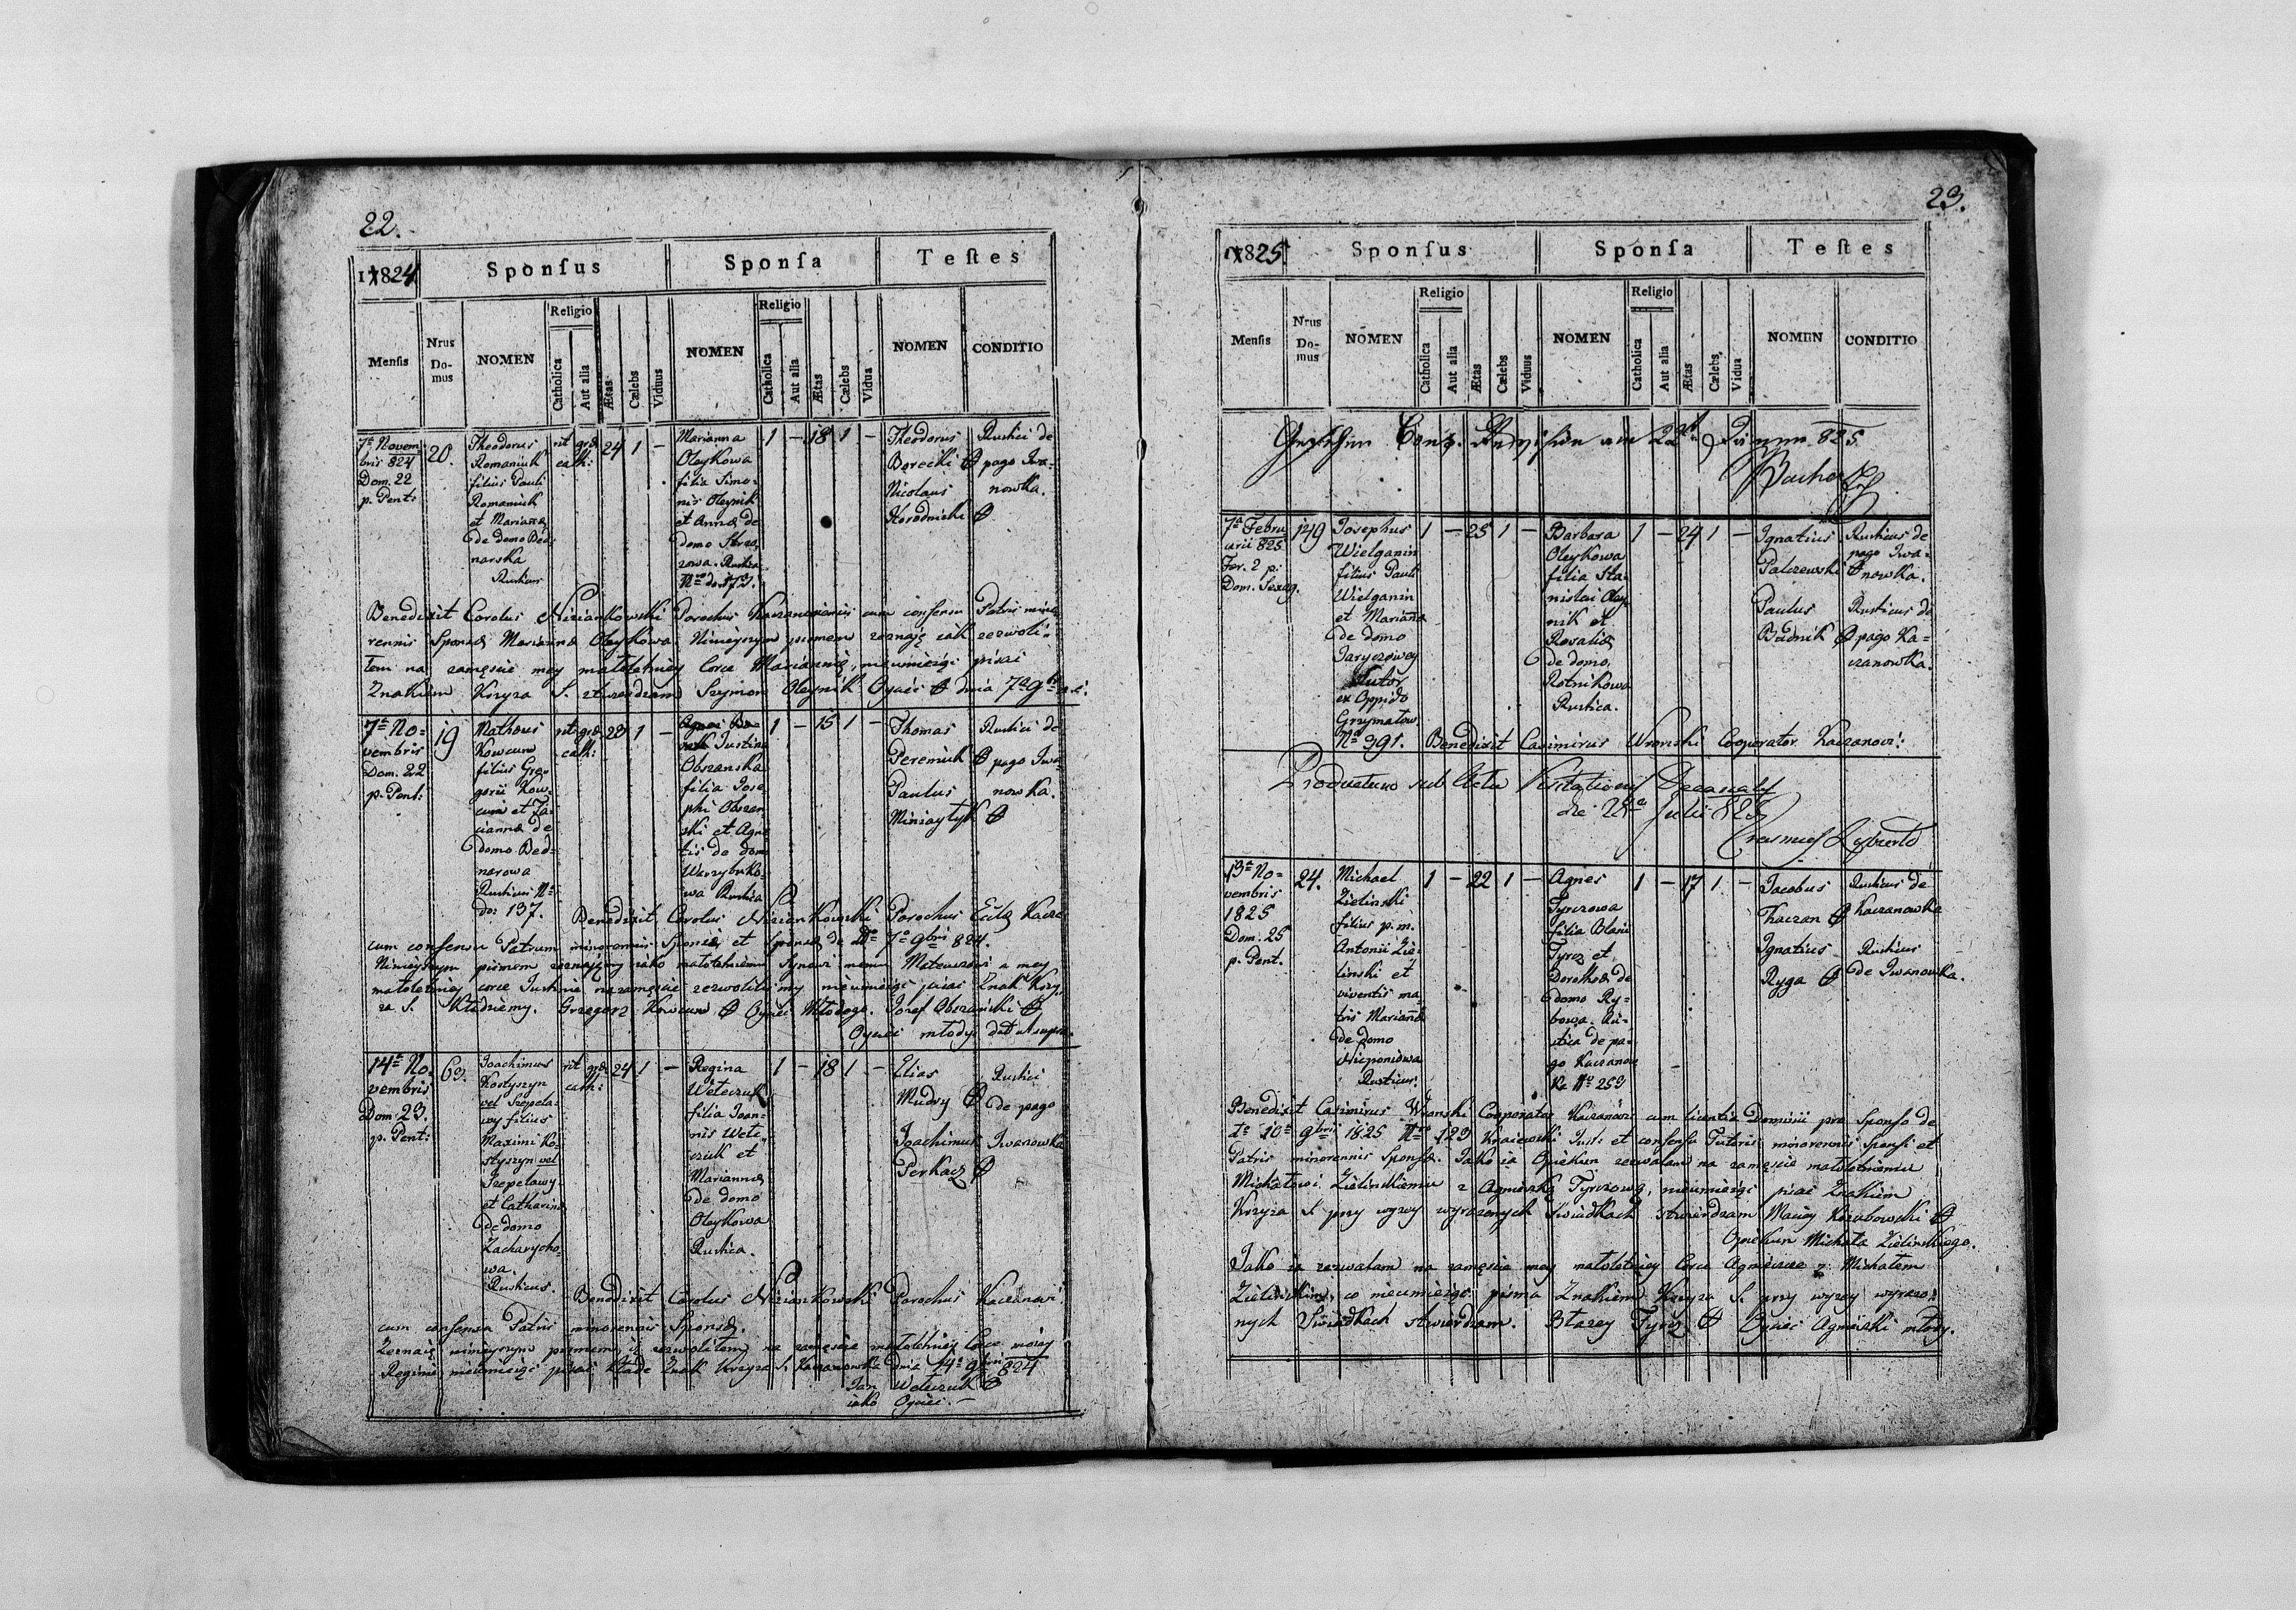 22.
1824
Sponſus
Sponſa
Teſtes
Menſis
Nrus Domus
NOMEN
Religio
Catholica
Aut alia
Ætas
Cælebs
Viduus
NOMEN
Religio
Catholica
Aut alia
Ætas
Cælebs
Vidua
NOMEN
CONDITIO
7a Novem
bris 824
Dom. 22
p. Pent:
20.
Theodorus
Romaniuk
filius Pauli
Romaniuk
et Mariannæ
de domo Bed
narska
Rusticus
rit græ
cath:
24 1 –
Marianna
Oleykowa
filia Simo
nis Oleynik
et Annæ de
domo
Rustica
No do: 173.
1 – 18 1 –
Theodorus
Borecki
Nicolaus
Horodnicki
Rustici de
pago Iwa=
nowka.
Benedixit Carolus Niziankowski Parochus cum consensu Patris mino
rennis Sponsæ Mariannæ Oleykowa Ninieyszym pismem zeznaję iak zezwoli=
łem na zamęscie mey małoletniey Corce Mariannie, nieumieiąc pisać
Znakiem Krzyża S. ztwierdzam Szymon Oleynik Oyciec dnia 7a 9br
7a No=
vembris
Dom. 22
p. Pent:
19
Matheus
Kowcun
filius Gre
gorii Kow=
cun et Ta
cianna de
domo Bed=
narowa
Rusticus No
do: 137.
rit græ
cath:
20 1 –
Justina
Obszanska
filia Jose
phi Obszan
ski et Agne
tis de dom
Warzybuko=
wa Rustica
1 – 15 1 –
Thomas
Peremiuk
Paulus
Rustici de
pago Iwa=
nowka.
Benedixit Carolus Niziankowski Parochus Ecclæ Kacza
cum consensu Patrum minorennis Sponsi et Sponsæ de dto 7a 9bris 824.
Ninieyszym pismem zeznajęmy iako małoletniemu Synowi memu Mateuszowi a mey
małoletniey corce Justinie na zamęscie zezwolilismy nieumieiąc pisać Znak Krzy
za S. Kładziemy. Grzegorz Kowcun Oyciec Młodego. Jozef Obszanski
Oyciec młody dat ut supra.
14a No
vembris
Dom: 23.
p. Pent:
63.
Joachimus
Kostyszyn
vel Szepeta
wy filius
Maximi Ko
styszyn vel
Szepetawy
et Catharina
de domo
Zacharycho=
wa.
Rusticus.
rit græ
cath:
24 1 –
Regina
Weteczuk
filia Joan=
nis Wete
czuk et
Mariannæ
de domo
Oleykowa
Rustica.
1 – 18 1 –
Elias
Mudry
Joachimus
Perkacz
Rustici
de pago
Iwanowka
Benedixit Carolus Niziankowski Parochus Kaczanow:
cum consensu Patris minorennis Sponsæ.
Zeznaię ninieyszym pismem, iż zezwoliłem na zamęscie małoletniey Corce moiey
Reginie nieumieiąc pisać kładę Znak Krzyża S. Kaczanowka Dnia 14a 9bris 824
Jan Weteczuk
iako Oyciec.
23.
1825
Sponſus
Sponſa
Teſtes
Menſis
Nrus Domus
NOMEN
Religio
Catholica
Aut alia
Ætas
Cælebs
Viduus
NOMEN
Religio
Catholica
Aut alia
Ætas
Cælebs
Vidua
NOMEN
CONDITIO
825
7a Febru
arii 825
Fer. 2 p:
Dom. Sexag.
149
Josephus
Wielganin
filius Pauli
Wielganin
et Marianna
de domo
Jaryczowey
Sutor
ex Oppido
Grzymałow
No 391.
1 – 25 1 –
Barbara
Oleykowa
filia Sta
nislai Oley
nik et
Rosaliæ
de domo,
Rotnikowa
Rustica.
1 – 24 1 –
Ignatius
Palczewski
Paulus
Budnik
Rusticus de
pago Iwa=
nowka.
Rusticus de
pago Ka=
czanowka.
Benedixit Casimirus Wronski Cooperator Kaczanov:
Productum sub Actu Visitationis Decanalis
die Julii 825
13a No=
vembris
1825
Dom. 25
p. Pent.
24.
Michael
Zielinski
filius p. m.
Antonii Zie
linski et
viventis ma
tris Marianna
de domo
Nieponiowa
Rusticus.
1 – 22 1 –
Agnes
Tyrczowa
filia Blasii
Tyrcz et
Dorotheæ de
domo Ry=
bowa. Ru=
stica de pa=
go Kaczanow
ka No 253
1 – 17 1. –
Jacobus
Kaczan
Ignatius
Ryga
Rusticus de
Kaczanowka
Rusticus
de Iwanowka.
Benedixit Casimirus Wronski Cooperator Kaczanov: cum licentia Dominii pro Sponso de
dto 10a 9bris 1825 Nro 123 Kraiewski Just: et consensu Tutoris minorennis Sponsi et
Patris minorennis Sponsæ. Jako ia Opiekun zezwalam na zamęscie małoletniemu
Michałowi Zielinskiemu z Agnieszką Tyrczową, nieumieiąc pisać Znakiem
Krzyża S. przy wyzey wyrazonych Swiadkach stwierdzam Maciey Kozubowski
Opiekun Michała Zielinskiego.
Jako ia zezwalam na zamęscie mey małoletniey Corce Agnieszce z Michałem
Zielinskim, co nieumieiąc pisma Znakiem Krzyża S. przy wyzey wyrazo=
nych Swiadkach stwierdzam. Błazey Tyrcz Oyciec Agnieszki młody.